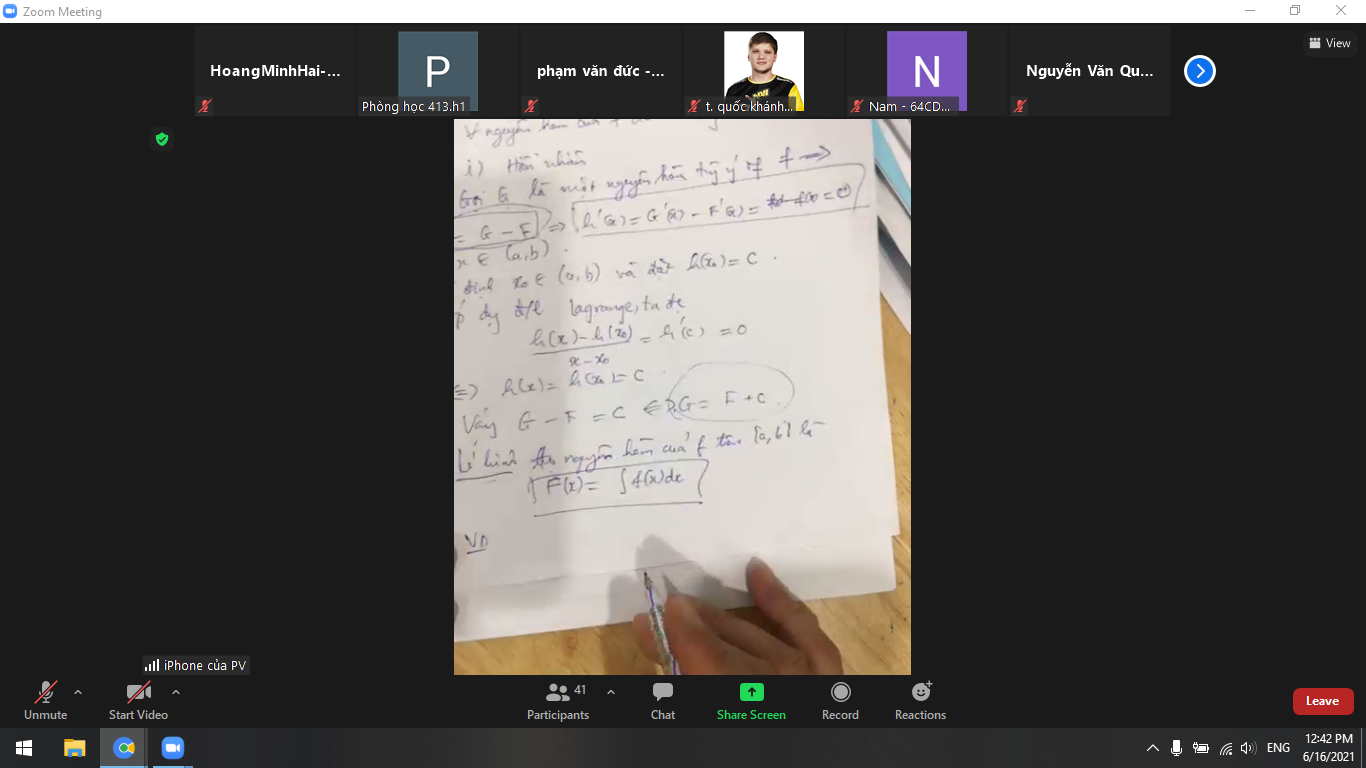 Zoom Meeting
View
HoangMinhHai-...
P
Phòng học 413.h1
phạm văn đức -...
t. quốc khánh...
N
Nam - 64CD...
Nguyễn Văn Qu...
∀ nguyên hàm của f
i) Hiển nhiên
Gọi G là một nguyên hàm tùy ý of f →
= G − F ⇒ h'(x) = G'(x) − F'(x) = f(x) = 0
x ∈ (a, b).
định x₀ ∈ (a, b) và đặt h(x₀) = C.
dụng đ/l lagrange, ta đc
h(x) − h(x₀) / x − x₀ = h'(c) = 0
⇔ h(x) = h(x₀) = C
Vậy G − F = C ⇔ G = F + C
nguyên hàm của f trên [a, b] là
F(x) = ∫ f(x)dx
VD
iPhone của PV
Unmute
Start Video
41
Participants
Chat
Share Screen
Record
Reactions
Leave
ENG
12:42 PM
6/16/2021